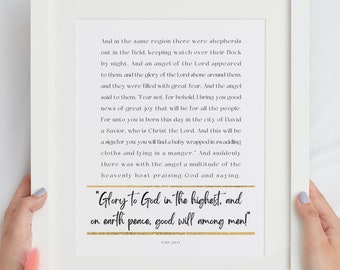 And in the same region there were shepherds
out in the field, keeping watch over their flock
by night. And an angel of the Lord appeared
to them, and the glory of the Lord shone around them,
and they were filled with great fear. And the angel
said to them, "Fear not, for behold, I bring you good
news of great joy that will be for all the people.
For unto you is born this day in the city of David
a Savior, who is Christ the Lord. And this will be
a sign for you: you will find a baby wrapped in swaddling
cloths and lying in a manger." And suddenly
there was with the angel a multitude of the
heavenly host praising God and saying,
"Glory to God in the highest, and
on earth peace, good will among men!"